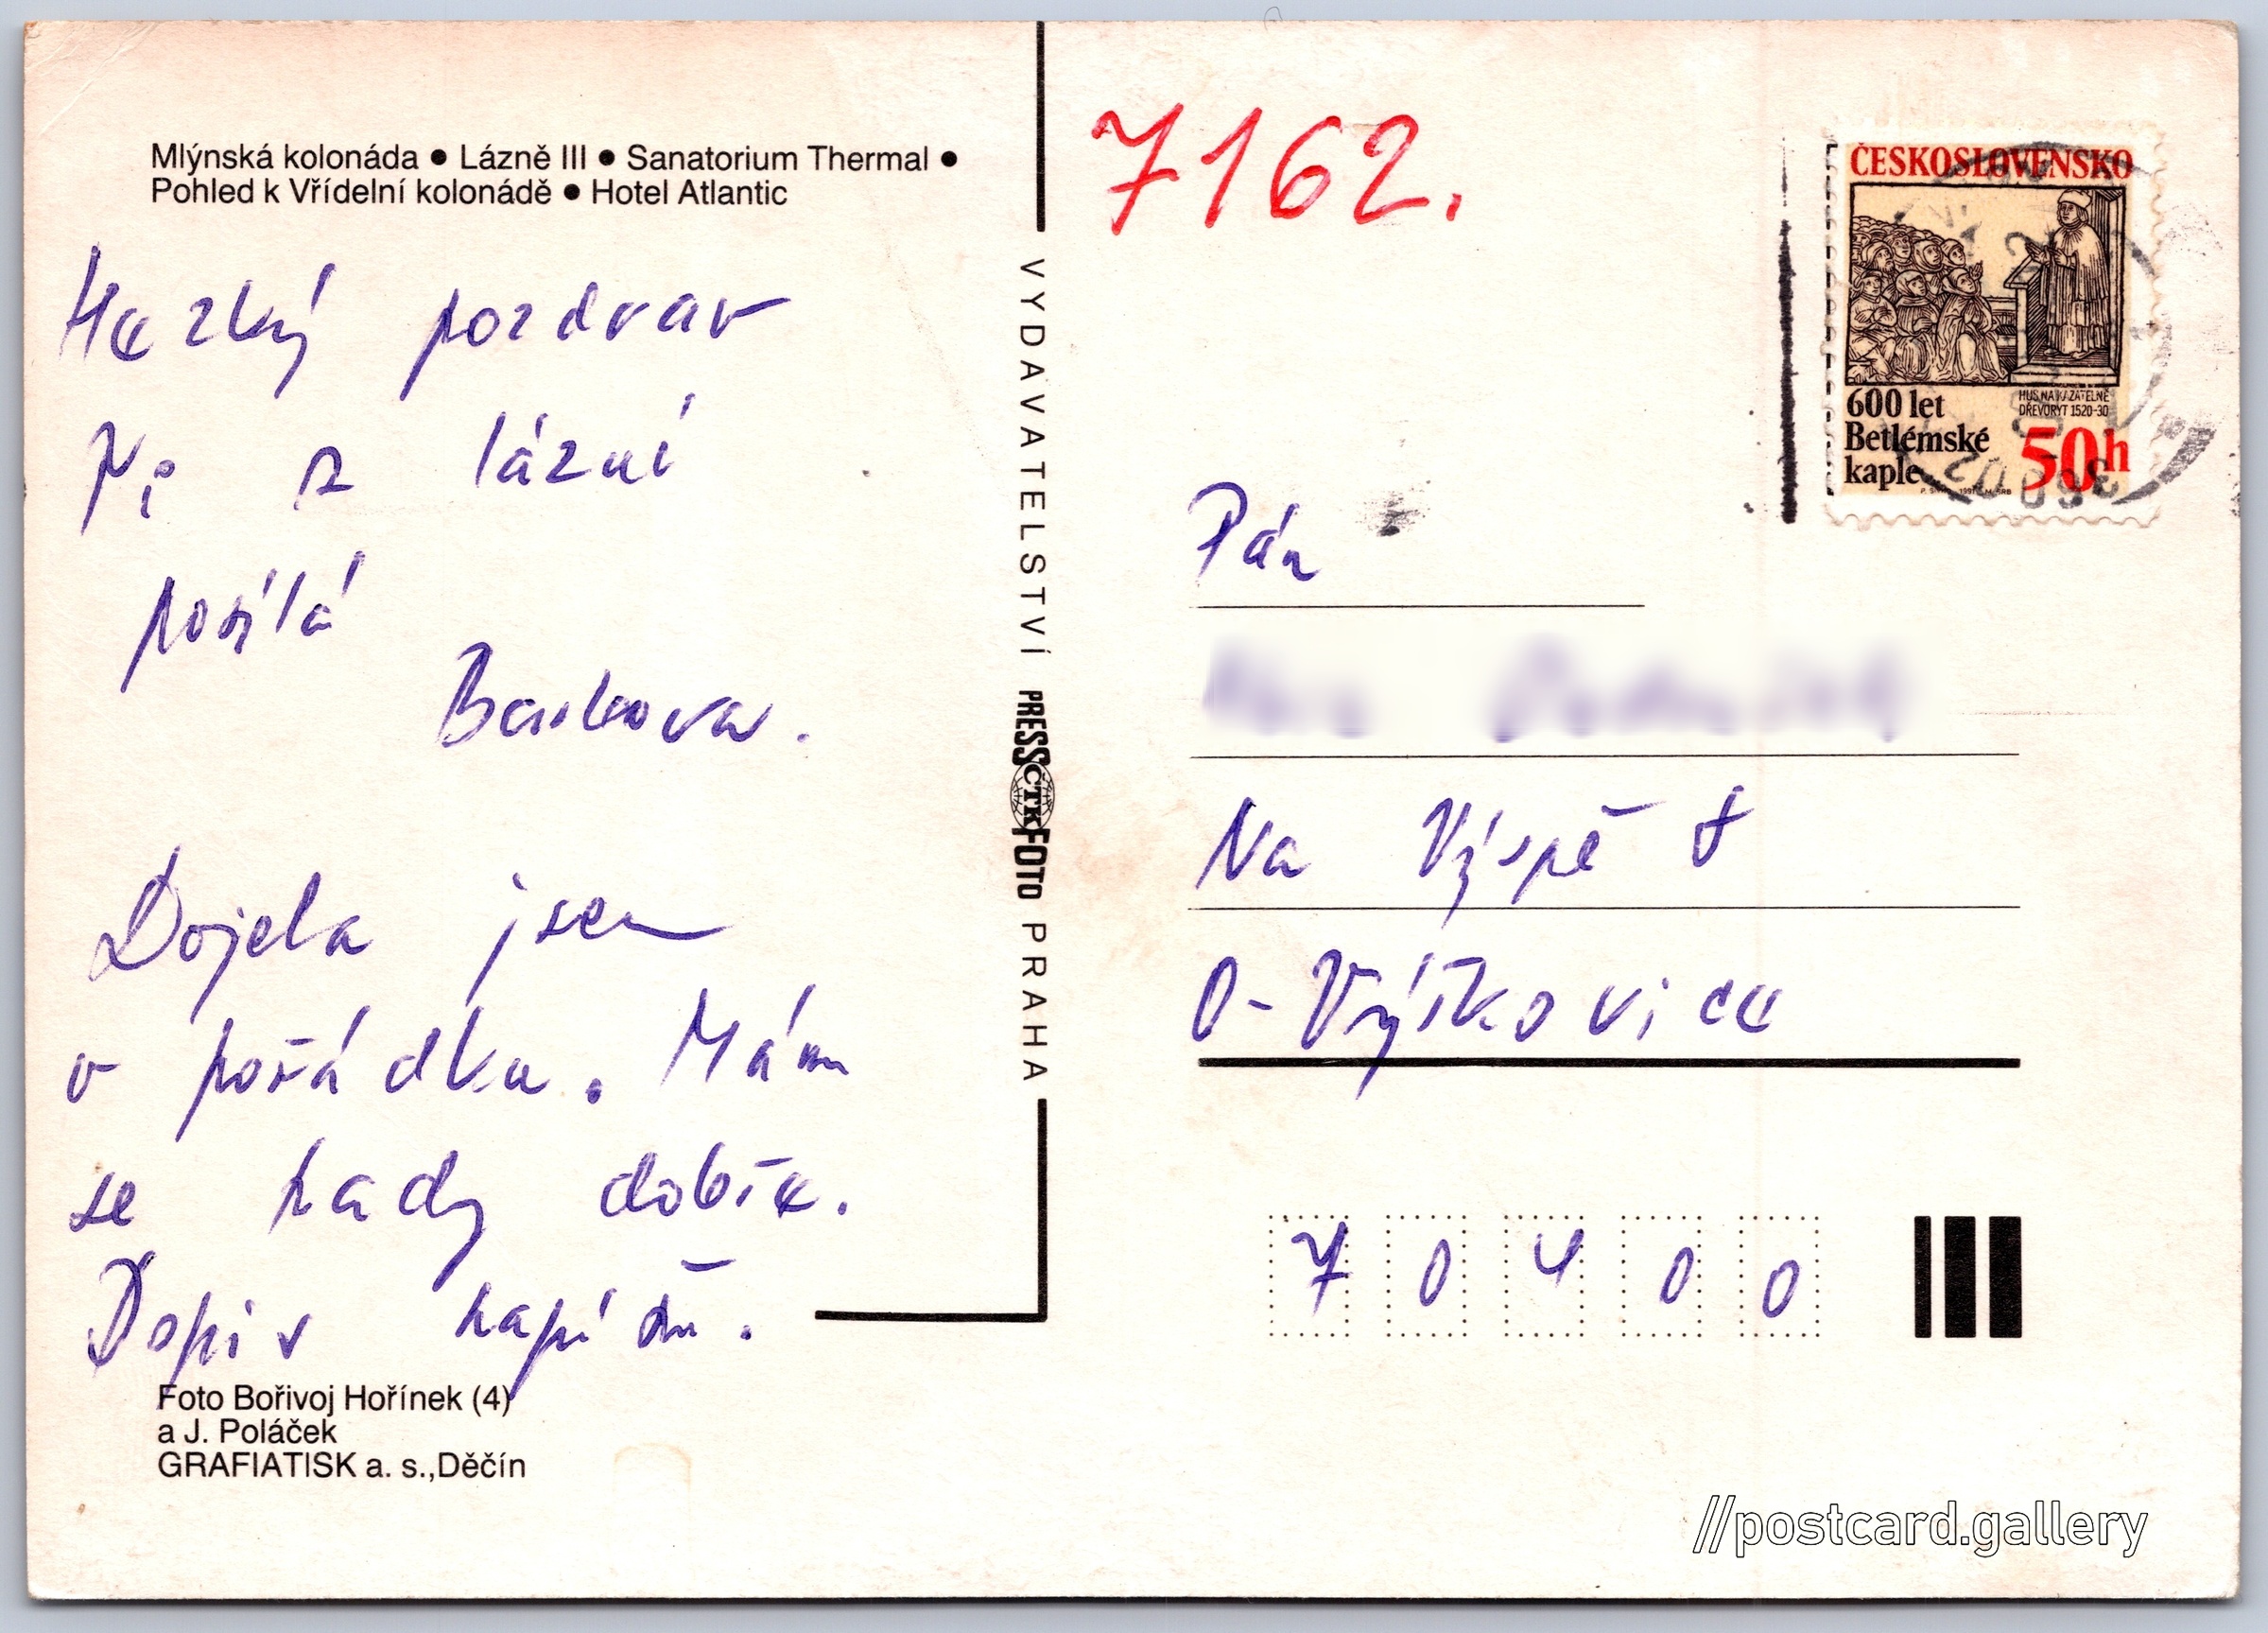 Mlýnská kolonáda ● Lázně III ● Sanatorium Thermal ●
Pohled k Vřídelní kolonádě ● Hotel Atlantic
Hezký pozdrav
z lázní
posílá
Dojela jsem
v pořádku. Mám
se tady dobře.
Dopis napíšu.
Foto Bořivoj Hořínek (4)
a J. Poláček
GRAFIATISK a. s.,Děčín
VYDAVATELSTVÍ PRESSFOTO PRAHA
ČTK
7162.
ČESKOSLOVENSKO
600 let
Betlémské
kaple
HUS NA KAZATELNĚ
DŘEVORYT 1520-30
50h
360 02
Pán
Na Výspě
O-Výškovice
70400
//postcard.gallery